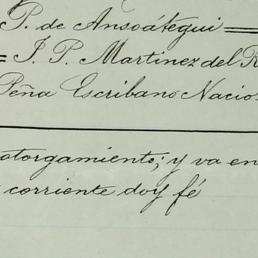 P. de Ansoátegui =
= J. P. Martinez del R
Peña Escribano Nacio
otorgamiento; y va en
corriente doy fé